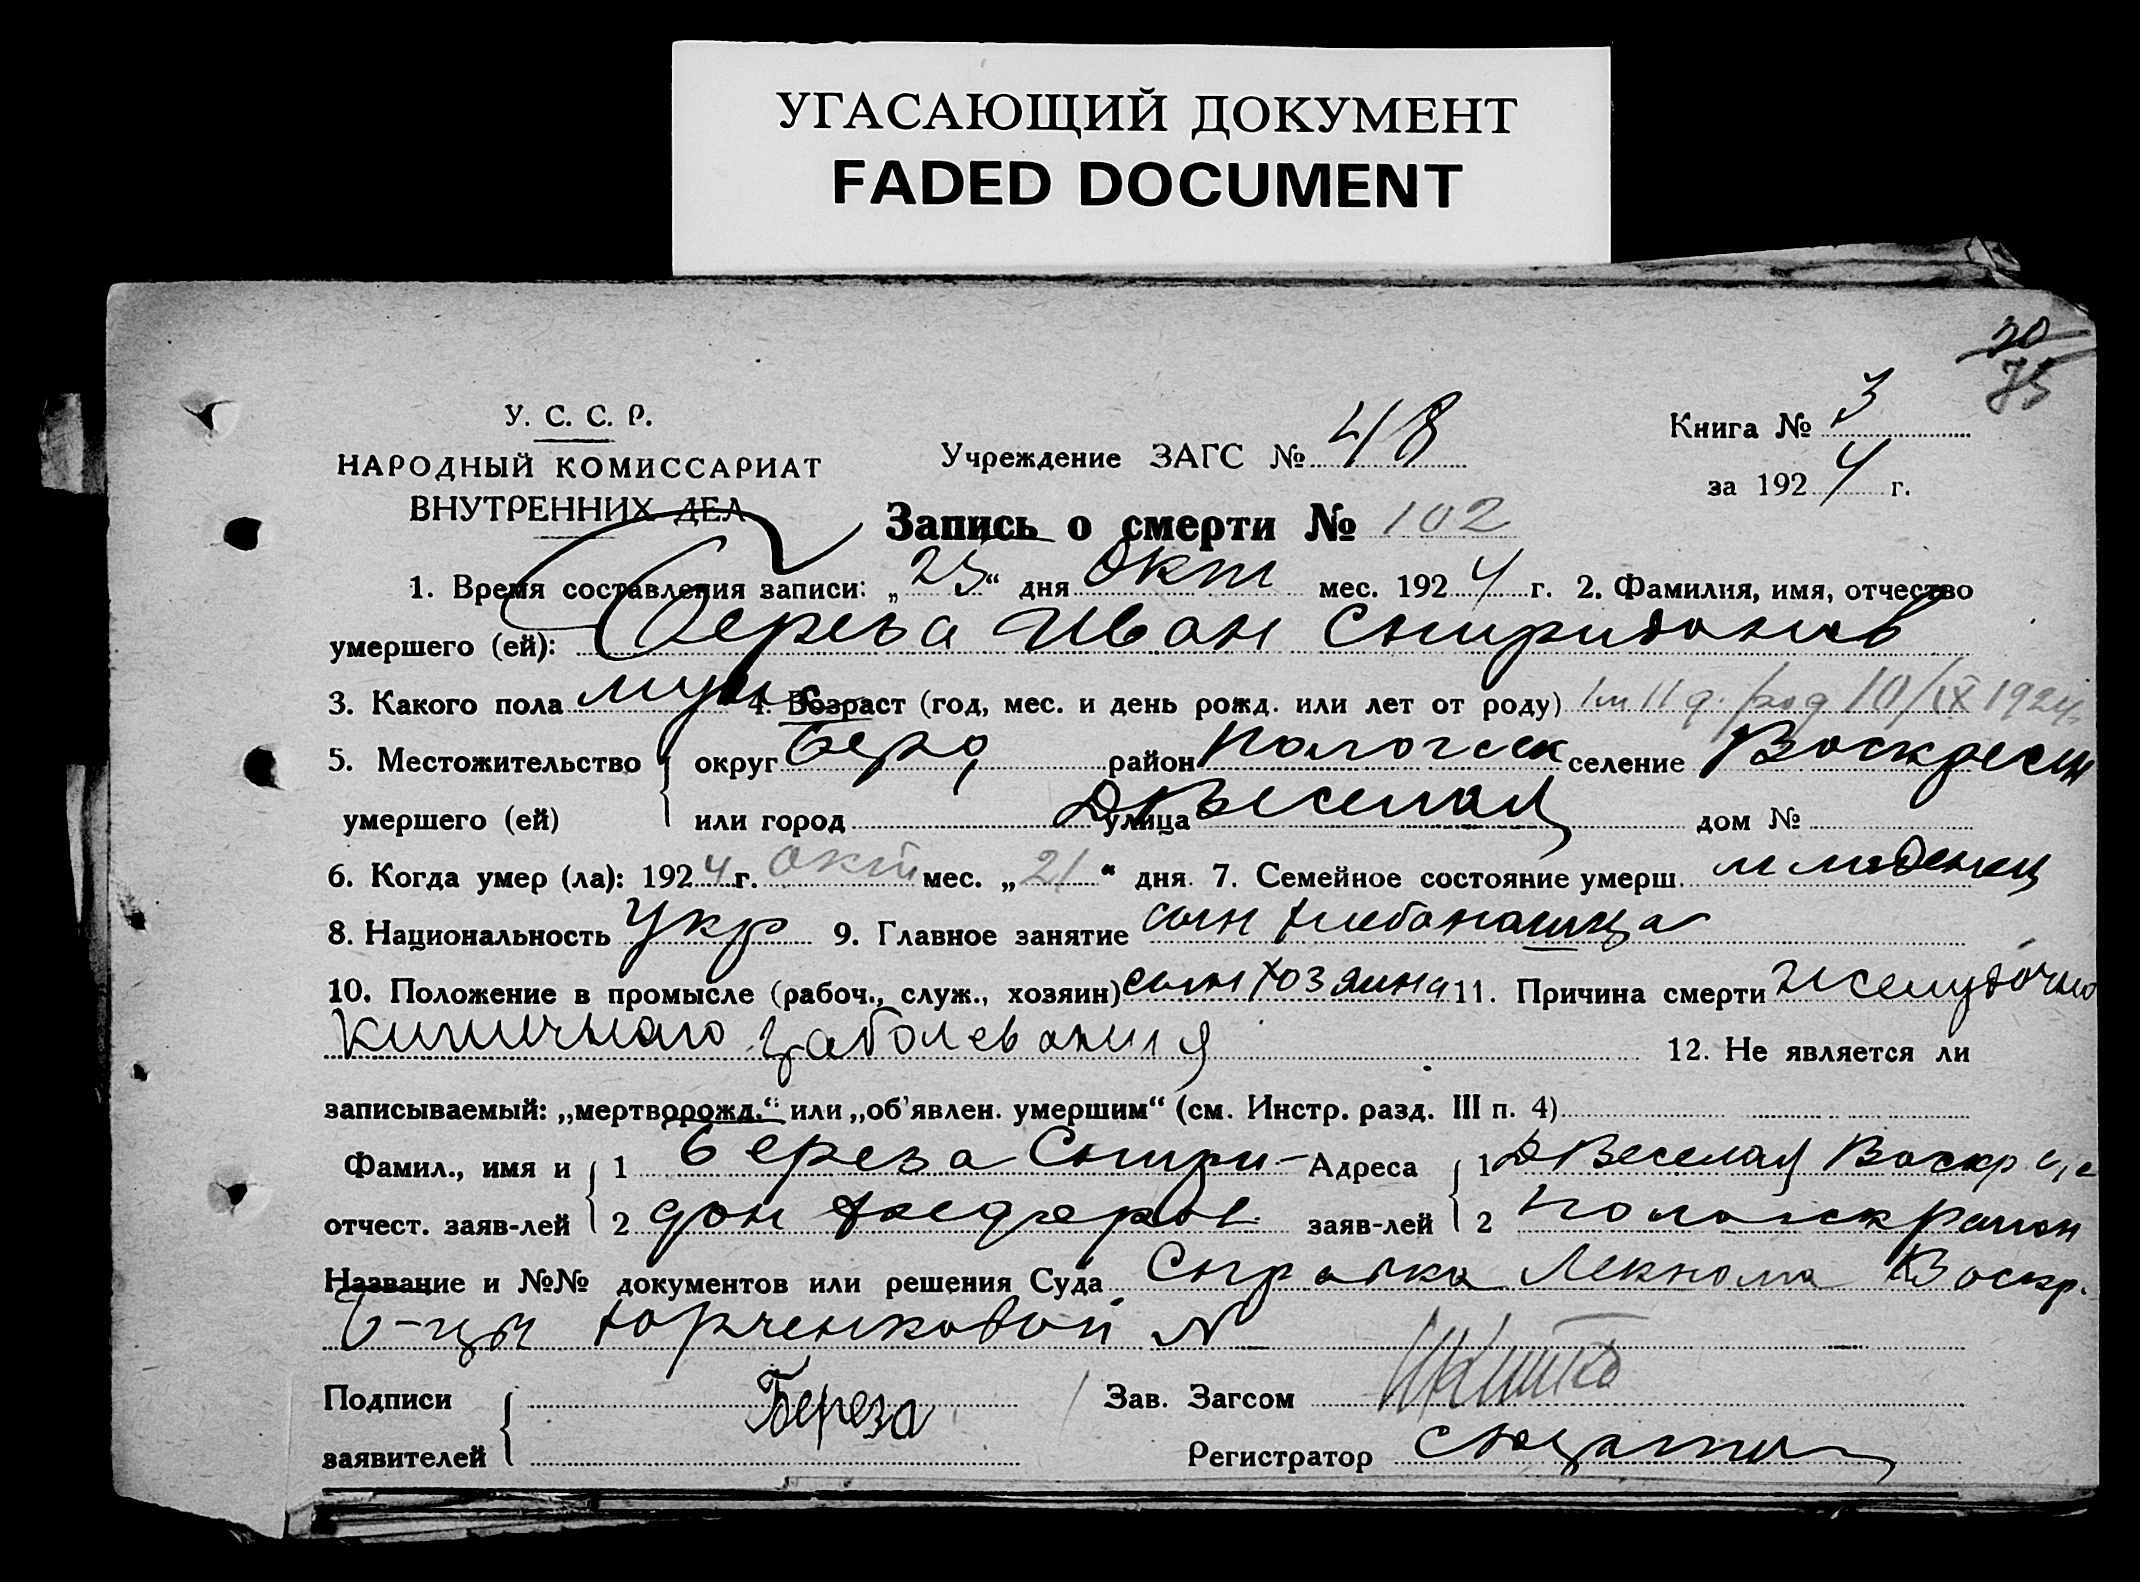 УГАСАЮЩИЙ ДОКУМЕНТ
FADED DOCUMENT
20
75
У. С. С. Р.
НАРОДНЫЙ КОМИССАРИАТ
ВНУТРЕННИХ ДЕЛ
Учреждение ЗАГС № 48
Книга № 3
за 1924 г.
Запись о смерти № 102
1. Время составления записи: „25“ дня Окт мес. 1924 г. 2. Фамилия, имя, отчество
умершего (ей): Береза Иван Спиридонов
3. Какого пола муж 4. Возраст (год, мес. и день рожд. или лет от роду) 1 м 11 д. род 10/IX 1924 г.
5. Местожительство округ Берд район Пологск селение Воскресен
умершего (ей) или город улица Д Веселая дом №
6. Когда умер (ла): 1924 г. окт мес. „21“ дня. 7. Семейное состояние умерш. младенец
8. Национальность Укр 9. Главное занятие сын хлебопашца
10. Положение в промысле (рабоч., служ., хозяин) сын хозяина 11. Причина смерти Желудочно
кишечного заболевания 12. Не является ли
записываемый: „мертворожд.“ или „об'явлен. умершим“ (см. Инстр. разд. III п. 4)
Фамил., имя и 1 Береза Спири- Адреса 1 Д Веселая Воскр с/с
отчест. заяв-лей 2 дон Федоров заяв-лей 2 Пологск район
Название и №№ документов или решения Суда Справка Лекпома Воскр.
б-цы Юрченковой №
Подписи Береза Зав. Загсом
заявителей Регистратор